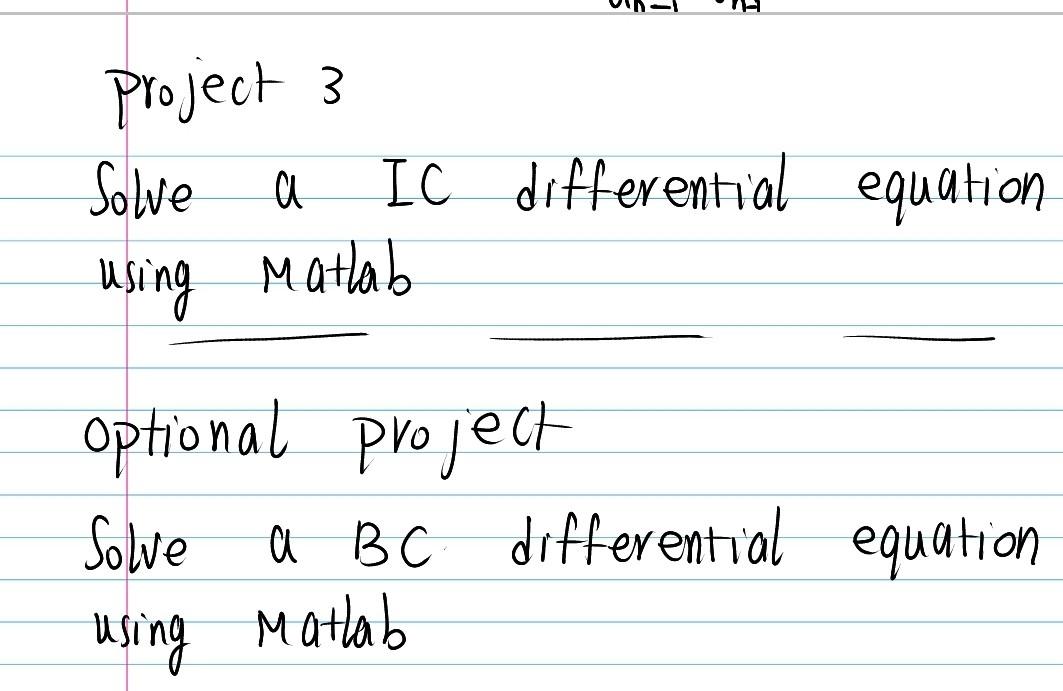 Project 3
Solve a IC differential equation
using Matlab
Optional project
Solve a BC differential equation
using Matlab